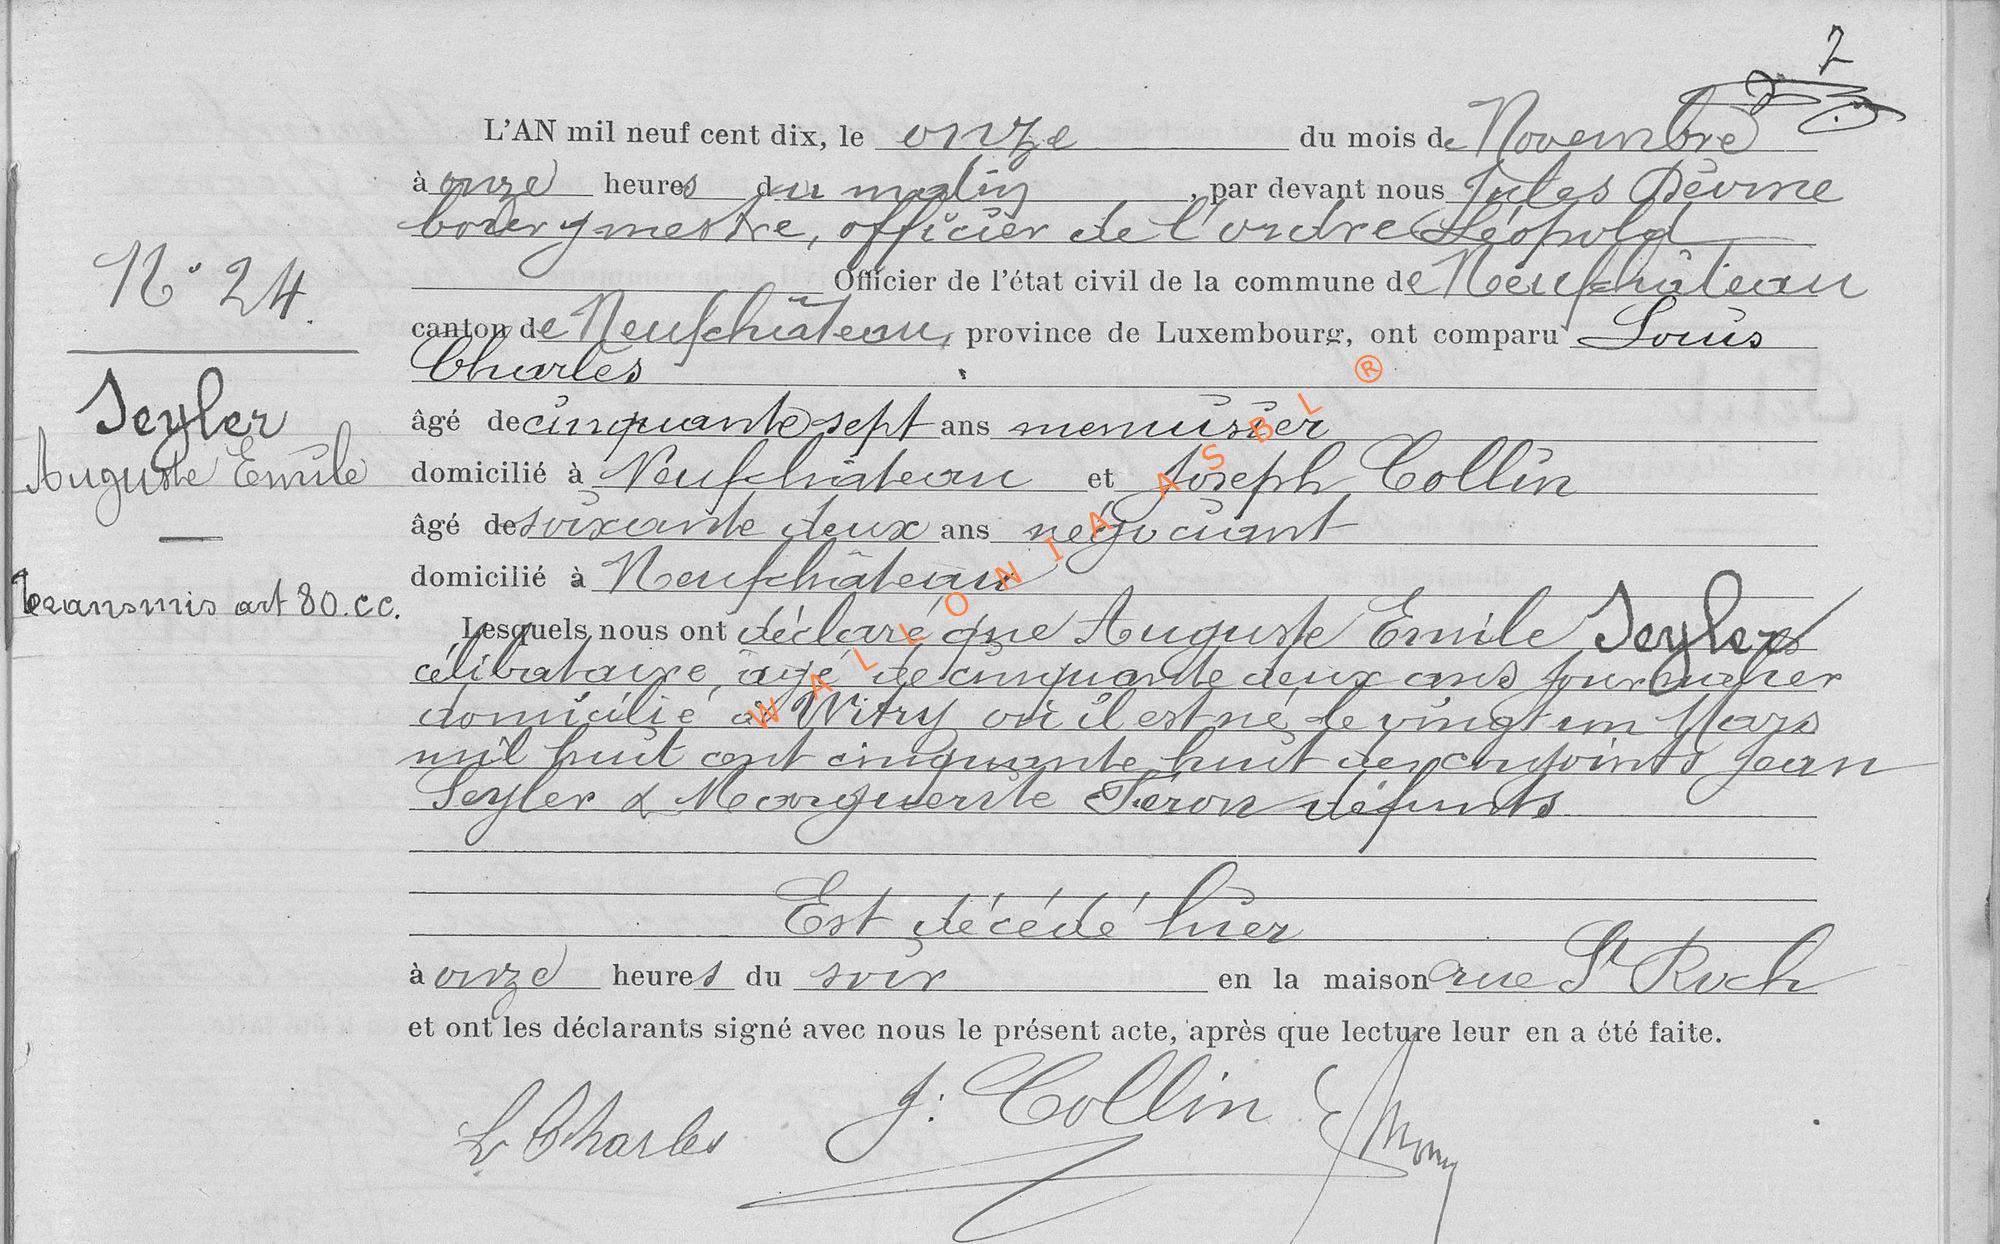 7
L'AN mil neuf cent dix, le onze du mois de Novembre
à onze heures du matin, par devant nous Jules
bourgmestre, officier de l'ordre Léopold
Officier de l'état civil de la commune de Neufchâteau
canton de Neufchâteau, province de Luxembourg, ont comparu Louis
Charles
âgé de cinquante sept ans menuisier
domicilié à Neufchâteau et Joseph Collin
âgé de soixante deux ans négociant
domicilié à Neufchâteau
Lesquels nous ont déclaré que Auguste Emile Seyler
célibataire, âgé de cinquante deux ans journalier
domicilié à Witry où il est né le vingt un Mars
mil huit cent cinquante huit des conjoints Jean
Seyler & Marguerite défunts
Est décédé hier
à onze heures du soir en la maison rue St Roch
et ont les déclarants signé avec nous le présent acte, après que lecture leur en a été faite.
L Charles J. Collin
N° 24.
Seyler
Auguste Emile
Transmis art 80. c c.
WALLONIA ASBL ®